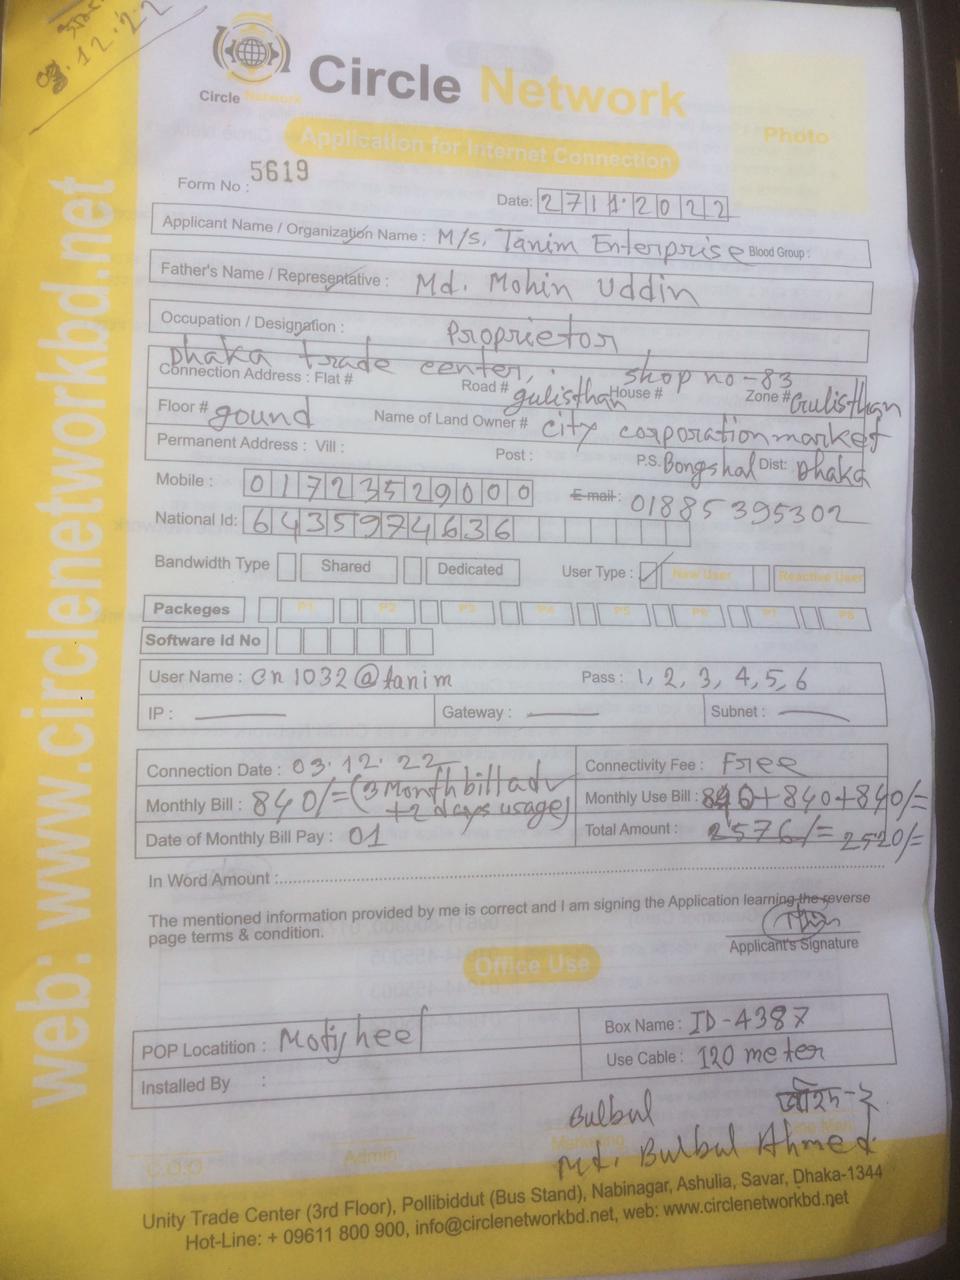 03.12.22
Circle Network
Circle Network
Application for Internet Connection
Photo
Form No : 5619
Date: 27 11.2022
Applicant Name / Organization Name : M/S, Tanim Enterprise Blood Group :
Father's Name / Representative : Md. Mohin Uddin
Occupation / Designation : Proprietor
Dhaka trade center, shop no-83
Connection Address : Flat # Road # gulisthan House # Zone # Gulisthan
Floor # gound Name of Land Owner # city corporation market
Permanent Address : Vill : Post : P.S. Bongshal Dist: Dhaka
Mobile : 01723529000 E-mail : 01885395302
National Id: 6435974636
Bandwidth Type Shared Dedicated User Type : New User Reactive User
Packeges P1 P2 P3 P4 P5 P6 P7 P8
Software Id No
User Name : cn1032@tanim Pass : 1, 2, 3, 4, 5, 6
IP : Gateway : Subnet :
Connection Date : 03.12.22 Connectivity Fee : Free
Monthly Bill : 840/= (3 Month bill adv +2 days usage) Monthly Use Bill : 840+840+840/=
Date of Monthly Bill Pay : 01 Total Amount : 2576/= 2520/=
In Word Amount :
The mentioned information provided by me is correct and I am signing the Application learning the reverse
page terms & condition.
Applicant's Signature
Office Use
POP Locatition : Motijheel Box Name : ID-4387
Installed By : Use Cable : 120 meter
Bulbul
C.O.O Admin Marketing
Md. Bulbul Ahmed
Unity Trade Center (3rd Floor), Pollibiddut (Bus Stand), Nabinagar, Ashulia, Savar, Dhaka-1344
Hot-Line: + 09611 800 900, info@circlenetworkbd.net, web: www.circlenetworkbd.net
web: www.circlenetworkbd.net